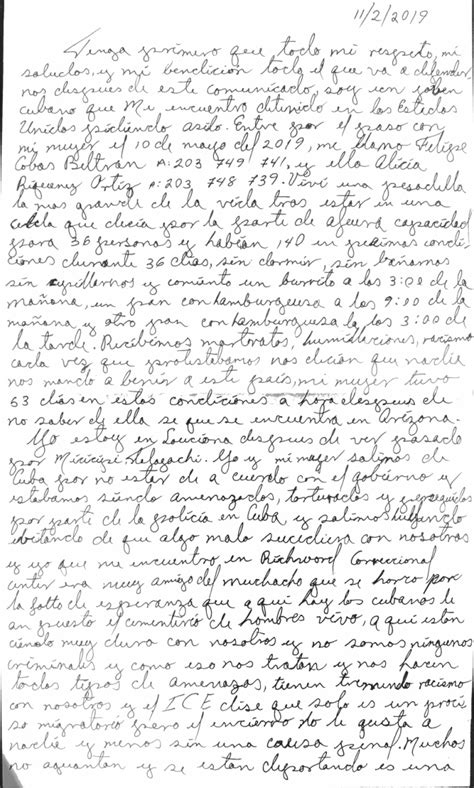 11/2/2019
Tenga primero que todo mi respeto, mi
saludos, y mi bendicion todo el que va a defender
nos despues de este comunicado, soy un joben
cubano que me encuentro ditenido en los Estados
Unidos pidiendo asilo. Entre por el paso con
mi mujer el 10 de mayo del 2019, me llamo Felipe
Cobas Beltran A:203 749 741, y ella Alicia
Ortiz A:203 748 739. Vivi una pesadilla
la mas grande de la vida tras estar in una
celda que decia por la parte de afuera capacidad
para 36 personas y habian 140 en pesimas condic
ciones durante 36 dias, sin dormir, sin bañarnos
sin cepillarnos y comiento un burrito a las 3:00 de la
mañana, un pan con hamburguesa a las 9:00 de la
mañana y otro pan con hamburguesa la las 3:00 de
la tarde. Recibimos martratos, humillaciones, racismo
cada vez que protestabamos nos decian que nadie
nos mando a benir a este pais, mi mujer tuvo
63 dias en estas condiciones a hora despues de
no saber de ella se que se encuentra en Arizona.
Yo estoy en despues de ver pasado
por Yo y mi mujer salimos de
Cuba por no estar de a cuerdo con el gobierno y
estabamos siendo amenazados, torturados y perseguidos
por parte de la policia en Cuba y salimos
evitando de que algo malo sucediera con nosotros
y yo que me encuentro en Richwood Correccional
center era muy amigo del muchacho que se horco por
la falta de esperanza que a qui hay los cubanos le
an puesto el cementerio de hombres vivo, a qui estan
siendo muy duro con nosotros y no somos ningunos
criminales y como eso nos tratan y nos hacen
todos tipos de amenazas, tienen tremendo racismo
con nosotros y el ICE dise que solo es un proce
so migratorio pero el encierro no le gusta a
nadie y menos sin una causa penal. Muchos
no aguantan y se estan deportando es una